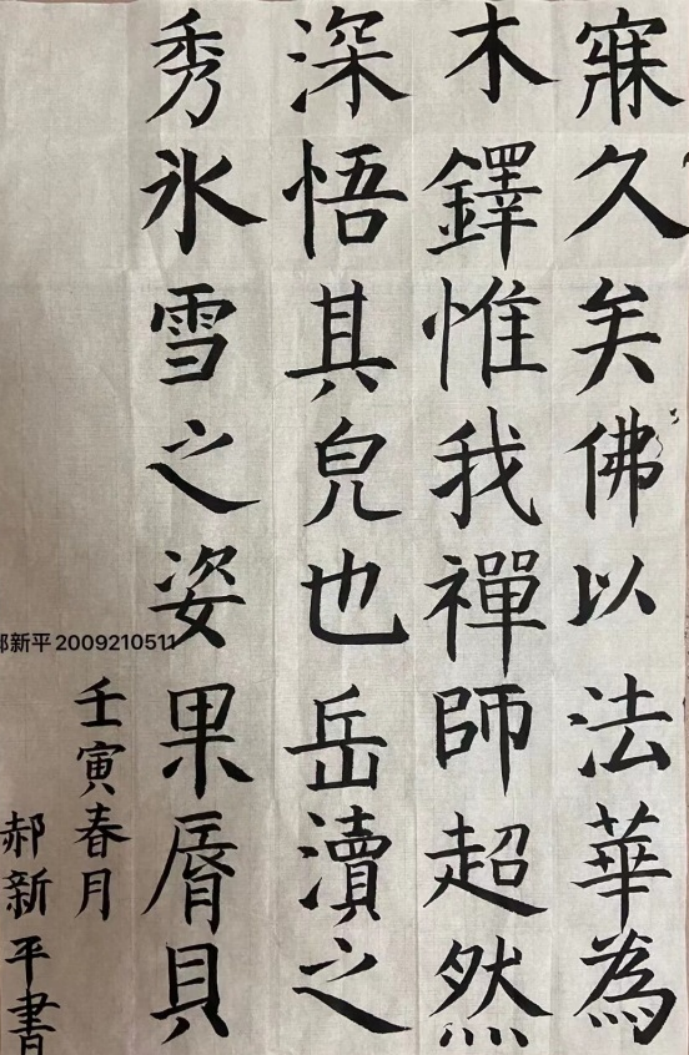 寐久矣佛以法華為
木鐸惟我禪師超然
深悟其皃也岳瀆之
秀氷雪之姿果脣貝
壬寅春月
郝新平書
郝新平2009210511